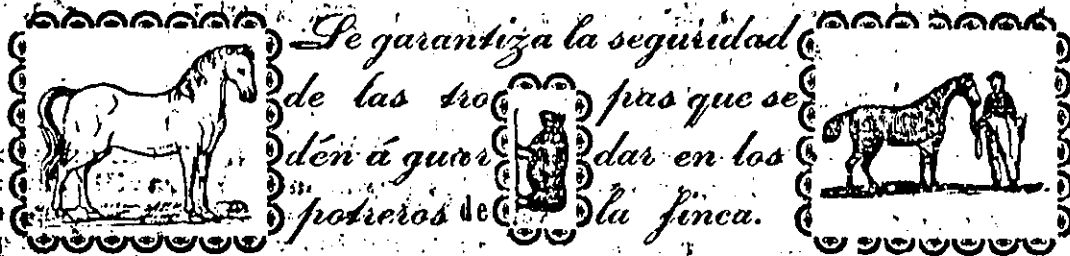 Se garantiza la seguridad
de las tropas que se
dén á guardar en los
potreros de la finca.